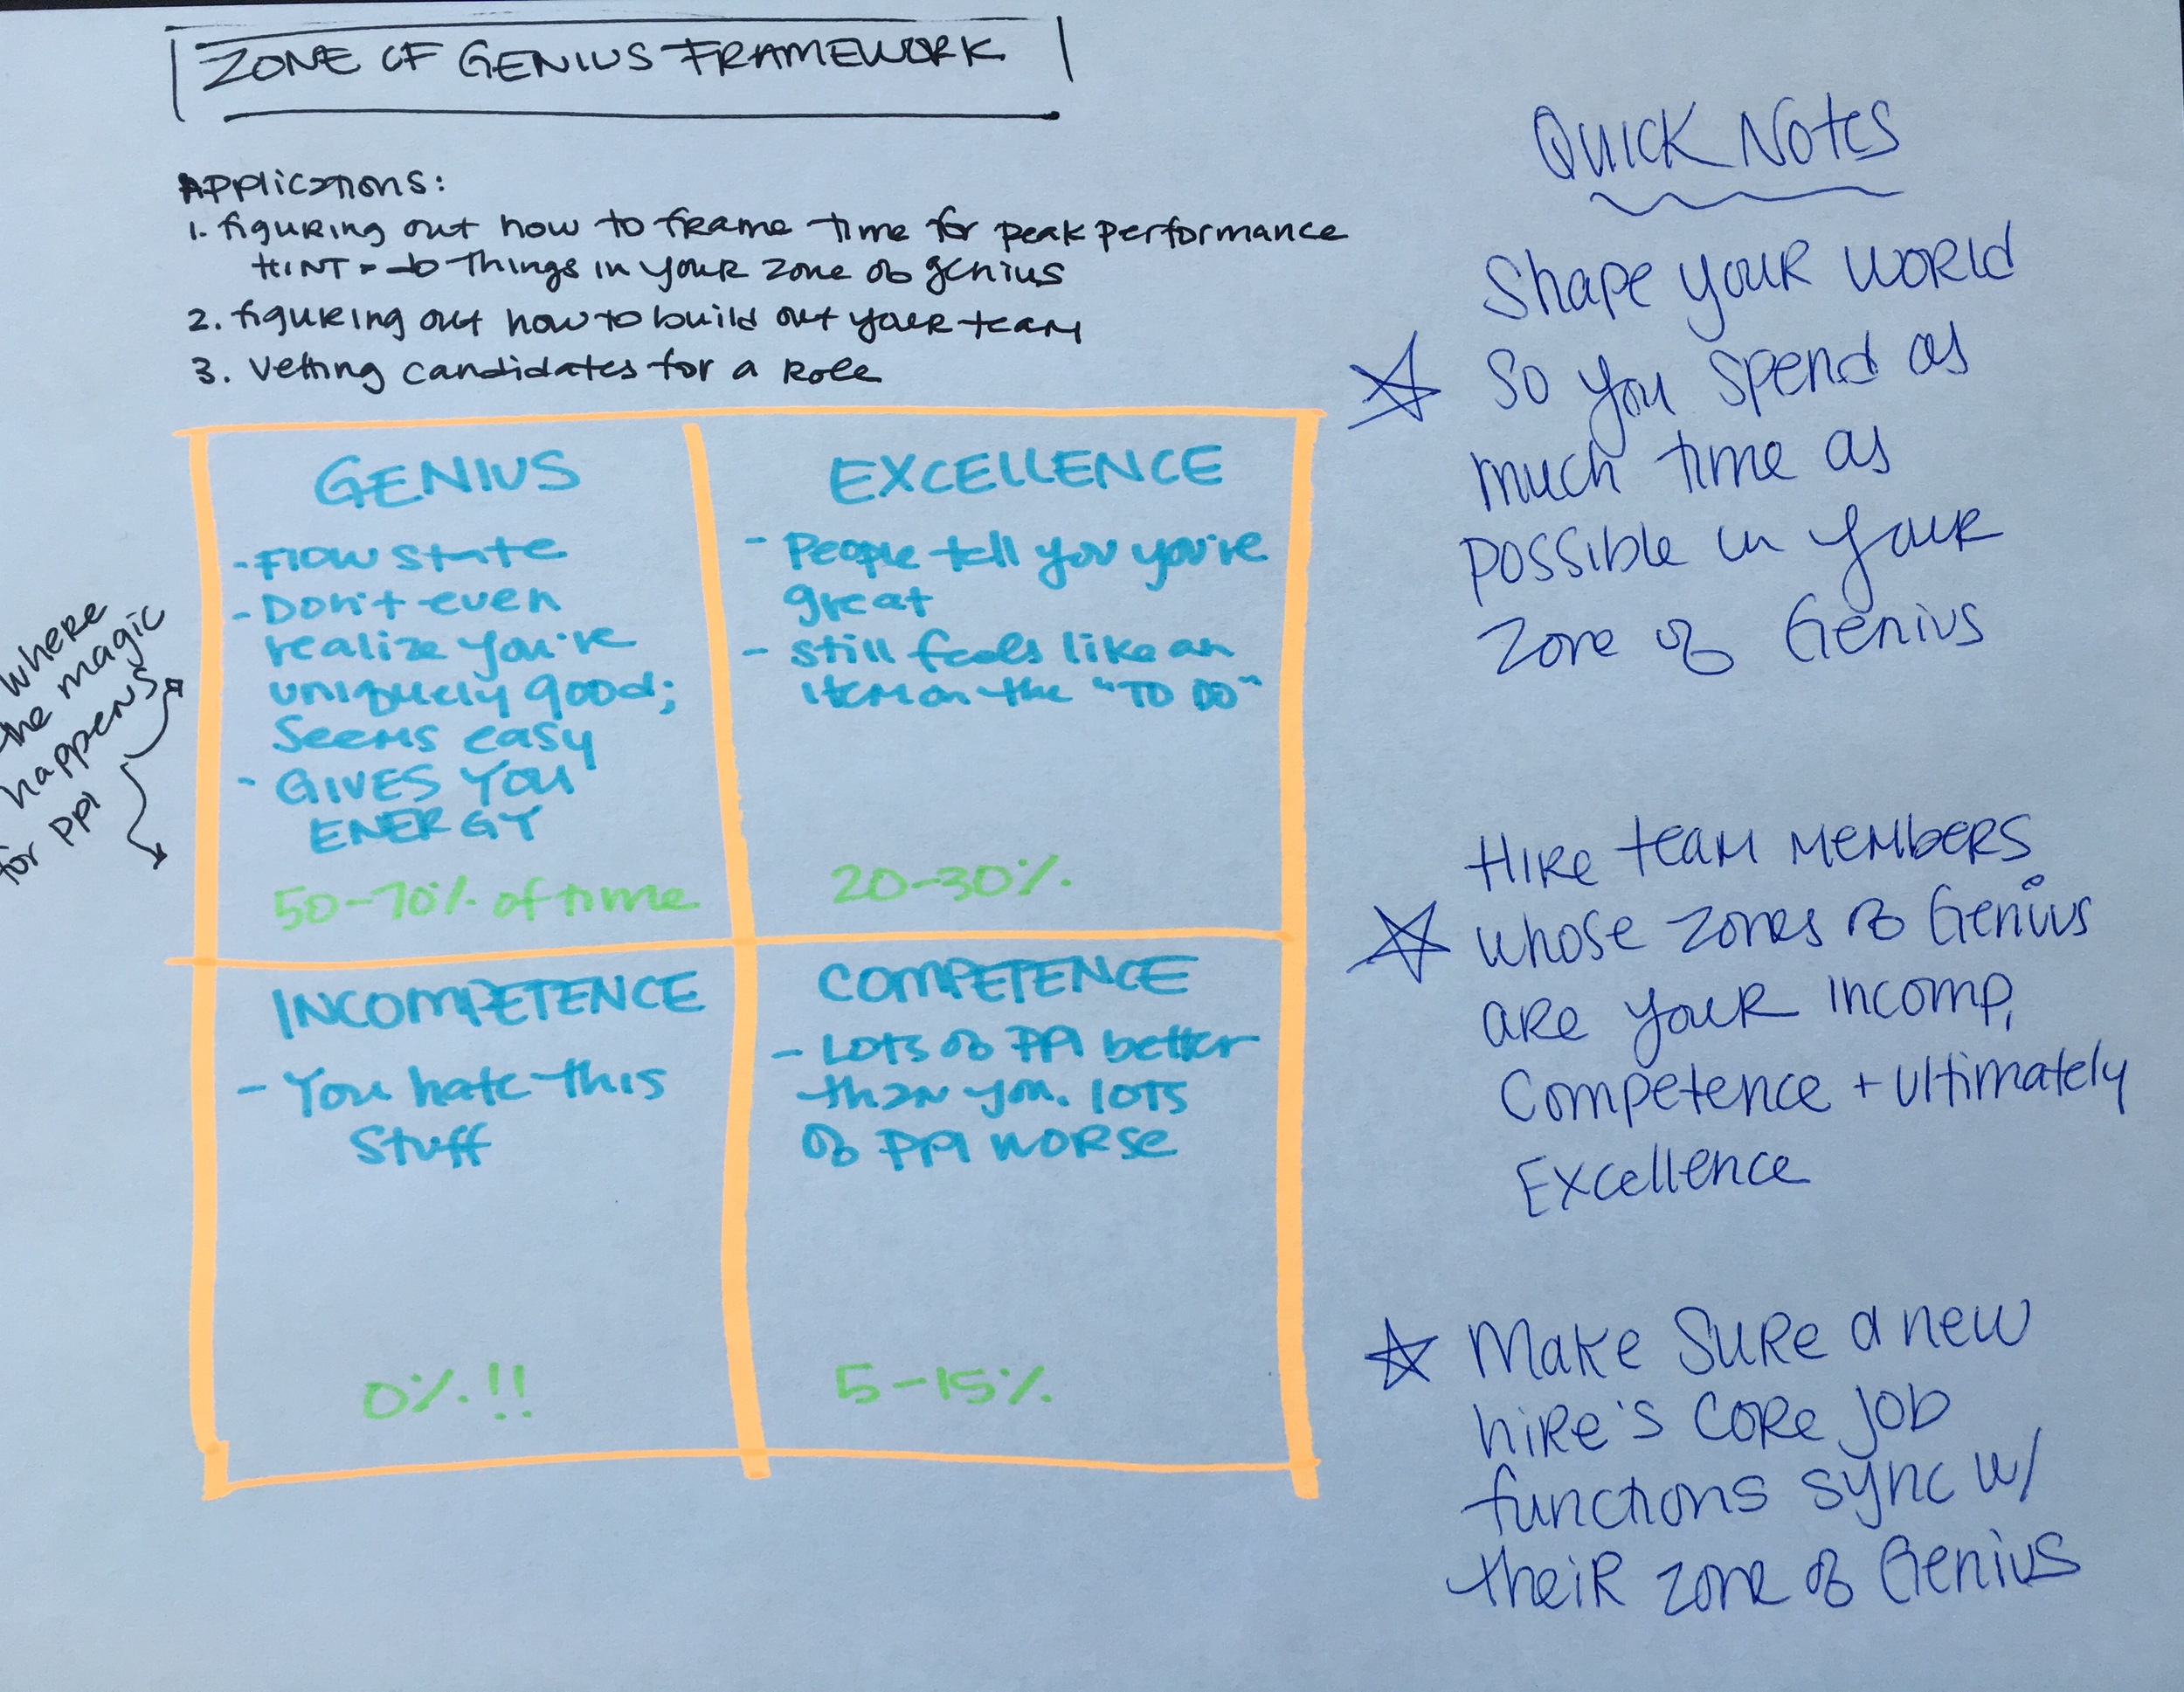 ZONE OF GENIUS FRAMEWORK
Applications:
1. figuring out how to frame time for peak performance
HINT = do things in your zone of genius
2. figuring out how to build out your team
3. Vetting candidates for a role
where
the magic
happens
for ppl
GENIUS
- Flow state
- Don't even
realize you're
uniquely good;
seems easy
- GIVES YOU
ENERGY
50-70% of time
EXCELLENCE
- People tell you you're
great
- still feels like an
item on the "TO DO"
20-30%
INCOMPETENCE
- You hate this
stuff
0%!!
COMPETENCE
- Lots of ppl better
than you. lots
of ppl worse
5-15%
Quick Notes
Shape your world
So you spend as
much time as
possible in your
Zone of Genius
Hire team members
whose zones of Genius
are your incomp,
Competence + ultimately
Excellence
Make sure a new
hire's core job
functions sync w/
their zone of Genius